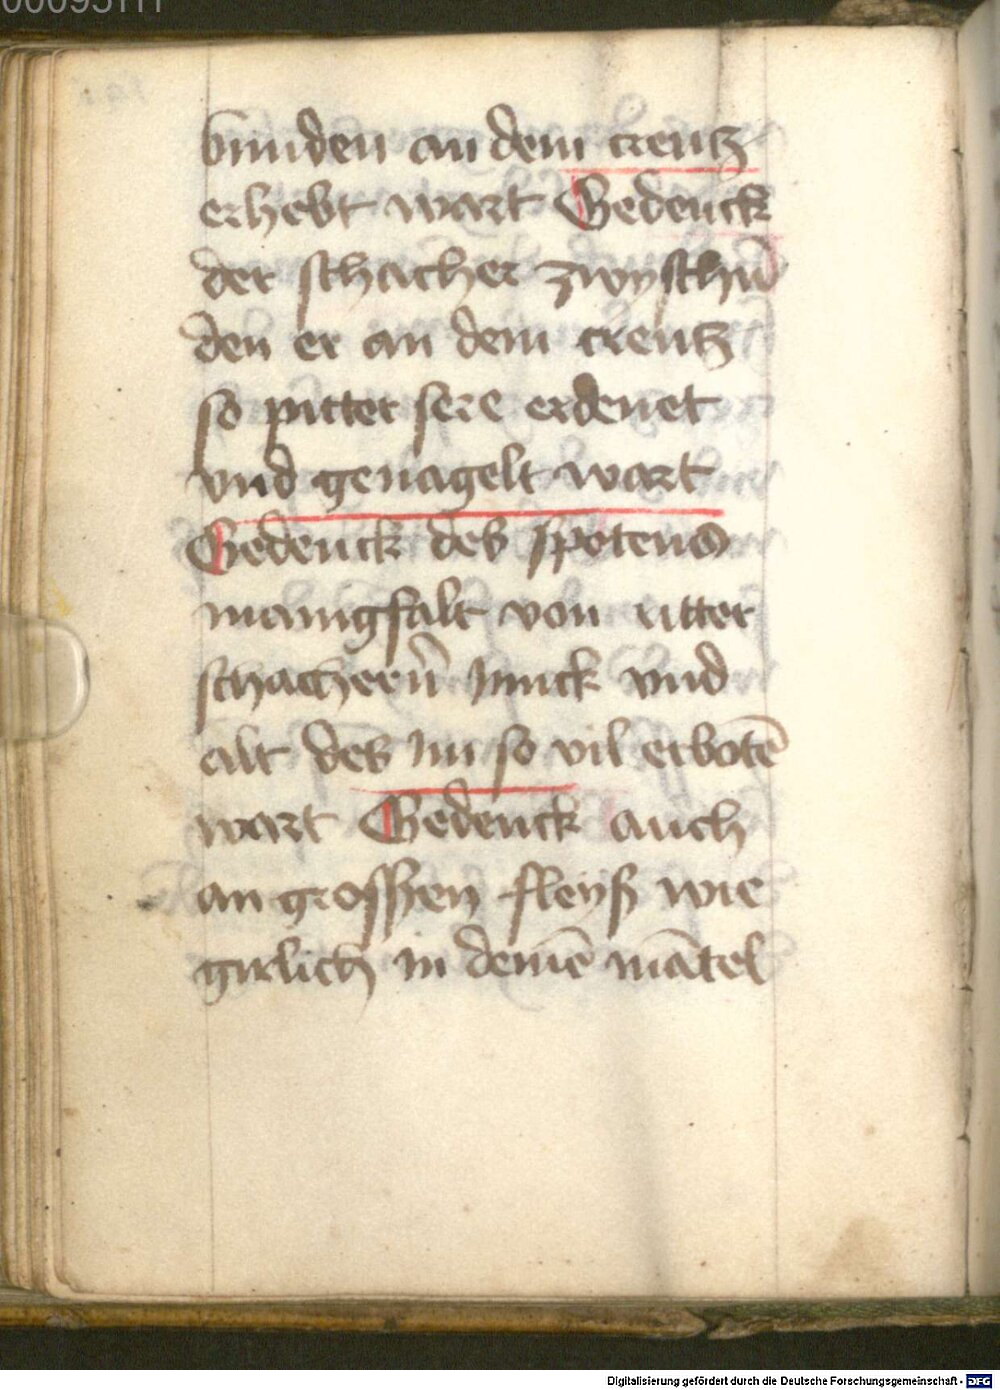 bunden an dem creutz
erhebt wart Gedenck
der schacher zwyschn̄
den er an dem creutz
so pitter sere erdenet
vnd genagelt wart
Gedenck des spotens
manigfalt von ritter
schachern̄ Junck vnd
alt des Im so vil erbotē
wart Gedenck auch
an grossen fleyß wie
girlich in deinē mātel
Digitalisierung gefördert durch die Deutsche Forschungsgemeinschaft - DFG